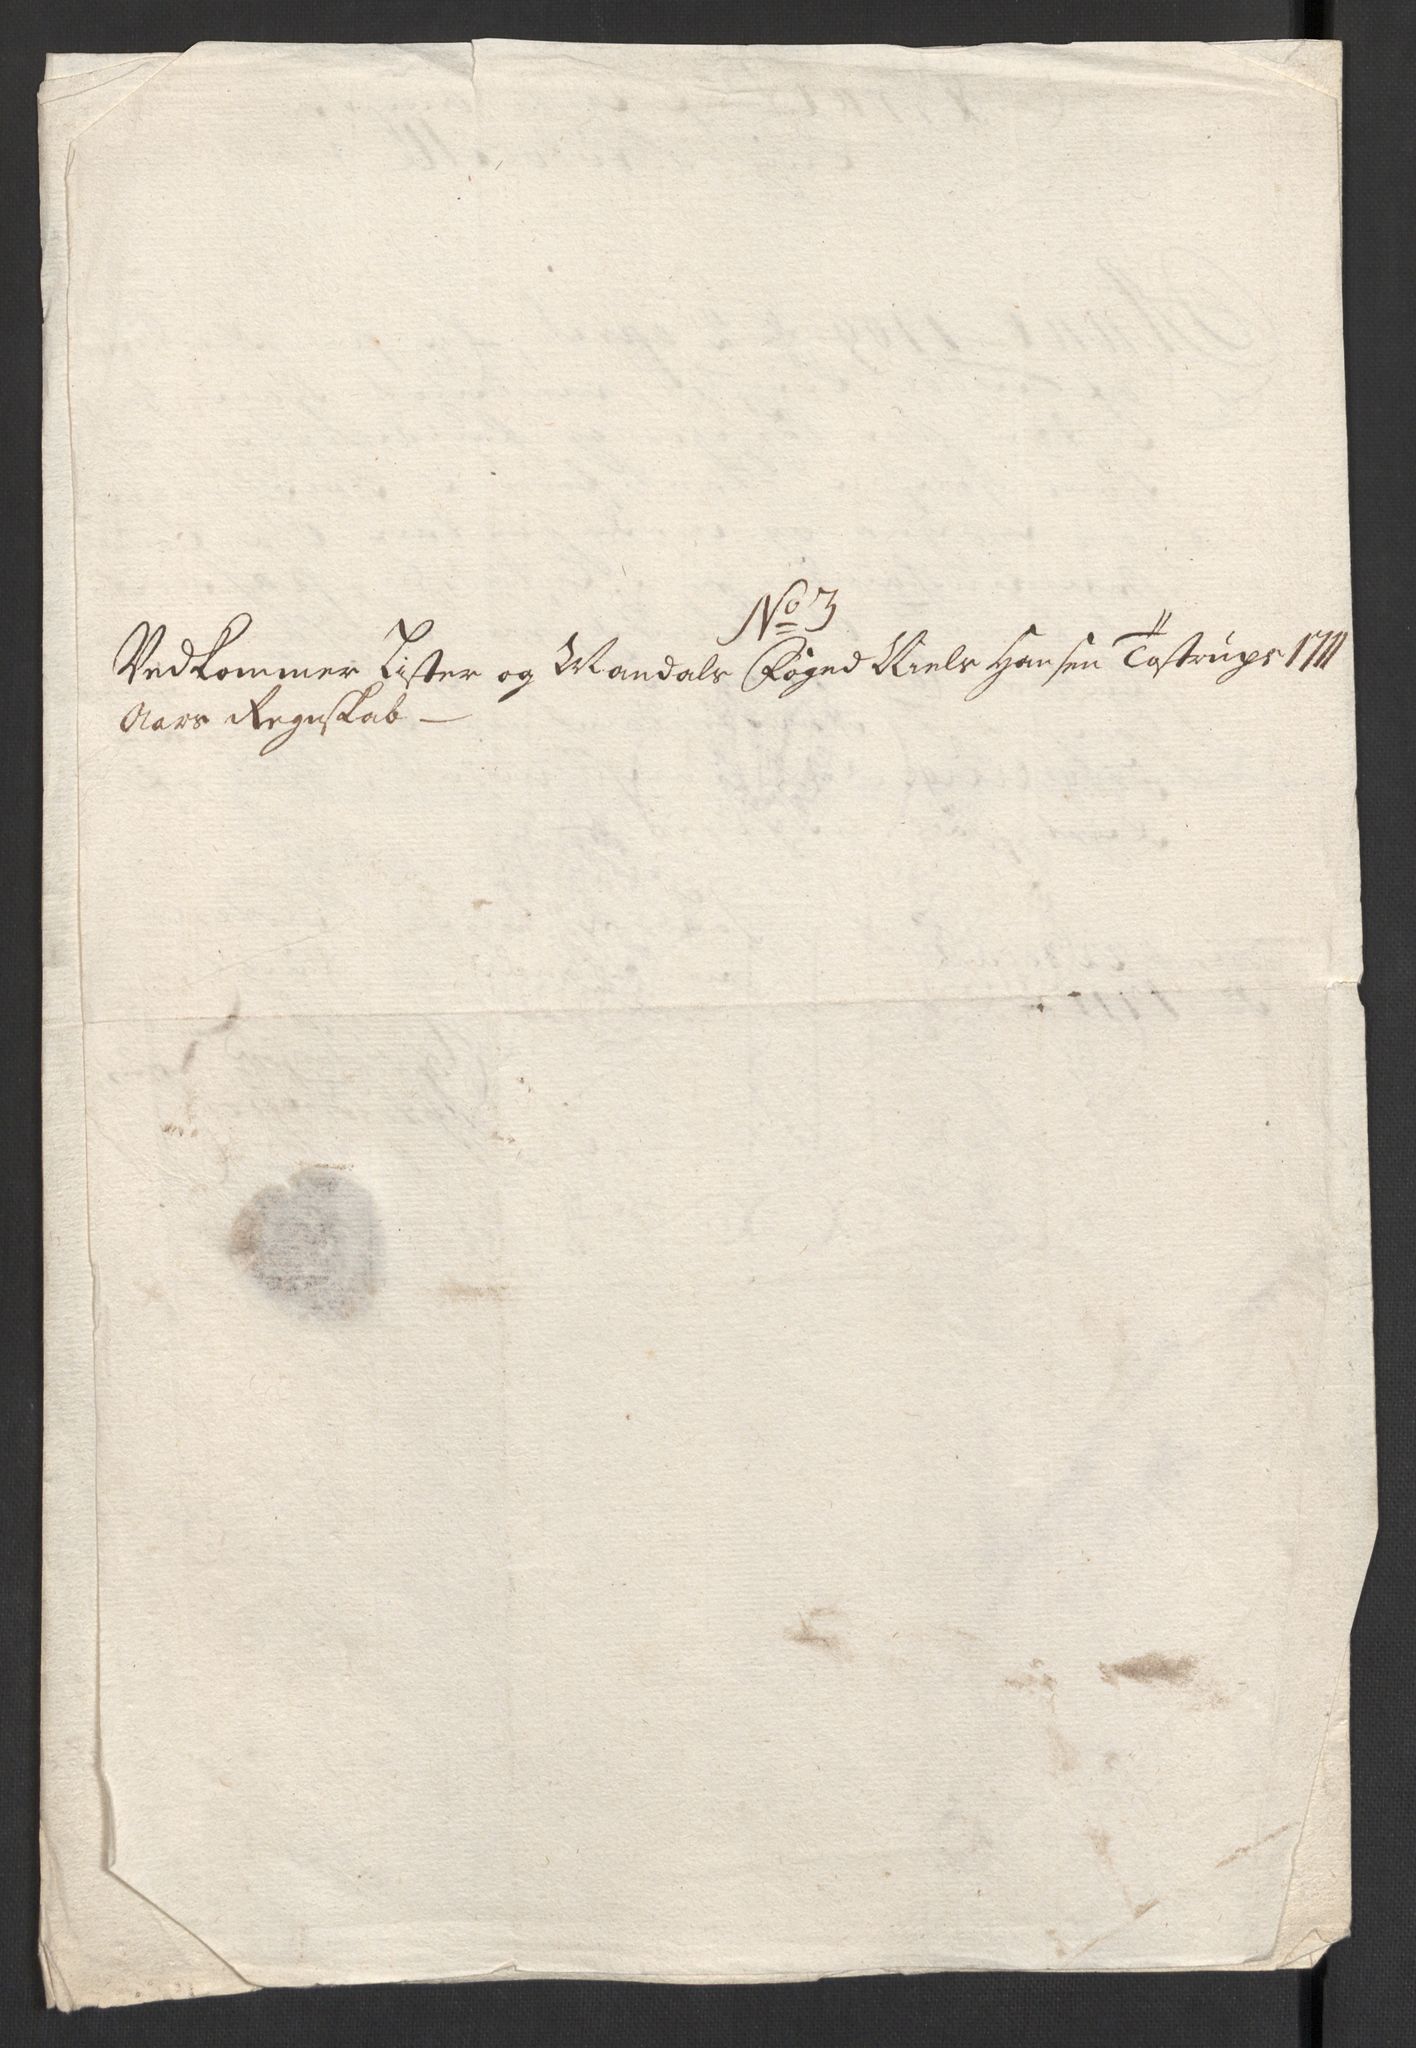 No 3
Vedkommer Lister og Mandals Foged Niels Hansen Tostrups 1711
Aars Regnskab —